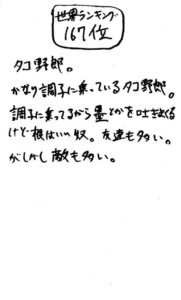 世界ランキング
167位
タコ野郎。
かなり調子に乗っているタコ野郎。
調子に乗ってるから墨とかを吐きまくる
けど根はいい奴。友達も多い。
がしかし敵も多い。